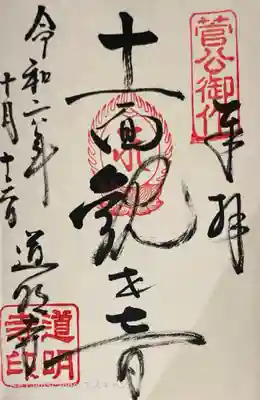 菅公御作
奉拝
十一面観世音
令和六年
十月十二日
道明寺
道明
寺印